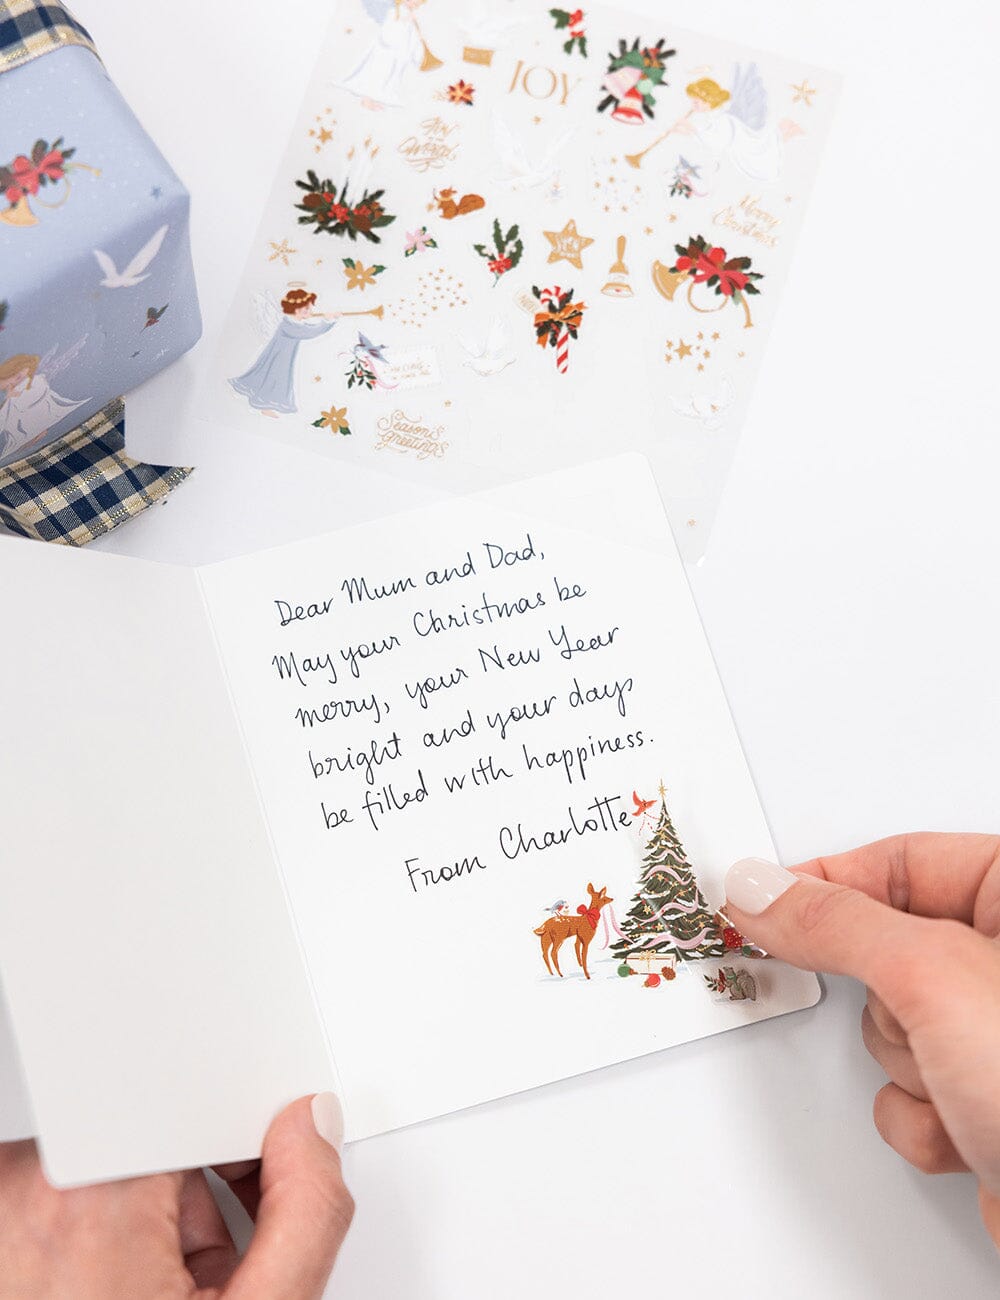 JOY
Joy
to the
World
Merry
Christmas
NOEL
Season's
greetings
Dear Mum and Dad,
May your Christmas be
merry, your New Year
bright and your days
be filled with happiness.
From Charlotte